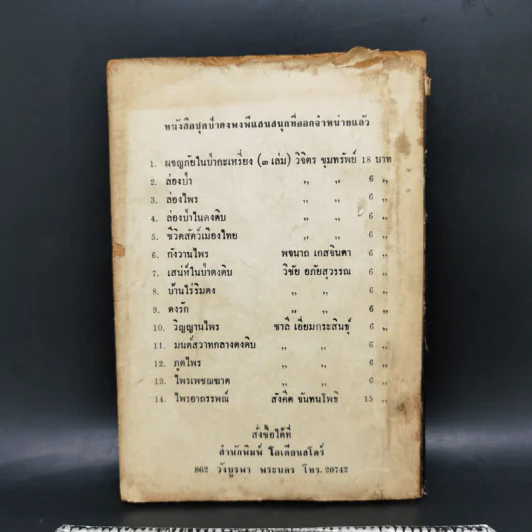 หนังสือชุดป่าดงพงพีแสนสนุกที่ออกจำหน่ายแล้ว
1. ผจญภัยในป่ากะเหรี่ยง (๓ เล่ม) วิจิตร ชุมทรัพย์ 18 บาท
2. ล่องป่า ,, ,, 6 ,,
3. ล่องไพร ,, ,, 6 ,,
4. ล่องป่าในดงดิบ ,, ,, 6 ,,
5. ชีวิตสัตว์เมืองไทย ,, ,, 6 ,,
6. กังวานไพร พจนาถ เกสจินดา 6 ,,
7. เสน่ห์ในป่าดงดิบ วิชัย อภัยสุวรรณ 6 ,,
8. บ้านไร่ริมดง ,, ,, 6 ,,
9. ดงรัก ,, ,, 6 ,,
10. วิญญานไพร ชาลี เอี่ยมกระสินธุ์ 6 ,,
11. มนต์สวาทกลางดงดิบ ,, ,, 6 ,,
12. ภูตไพร ,, ,, 6 ,,
13. ไพรเพชฌฆาต ,, ,, 6 ,,
14. ไพรอาถรรพณ์ สังคีต จันทนโพธิ 15 ,,
สั่งซื้อได้ที่
สำนักพิมพ์ โอเดียนสโตร์
862 วังบูรพา พระนคร โทร. 20742